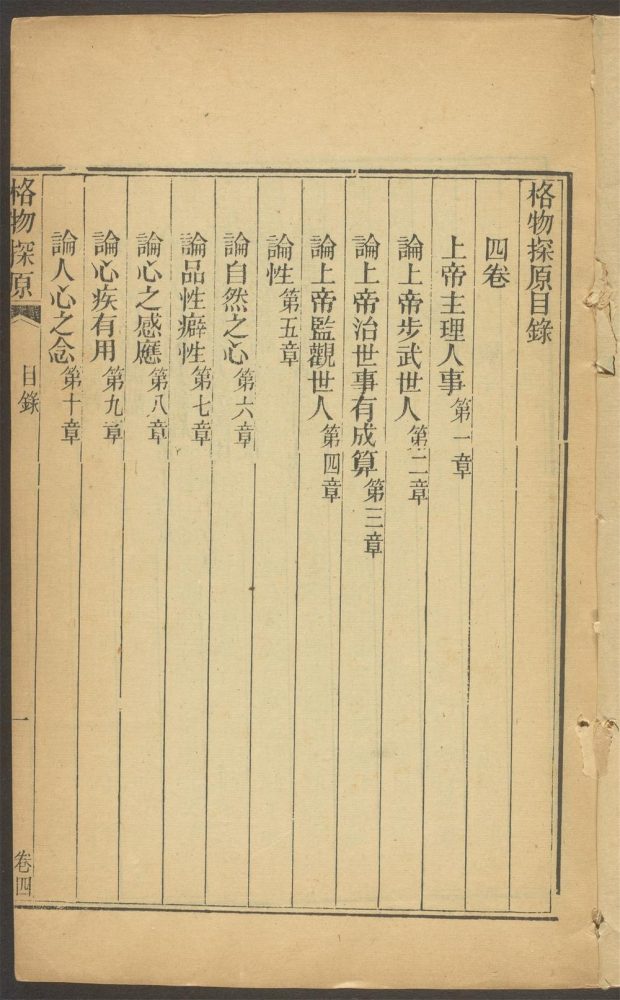 格物探原目錄
四卷
上帝主理人事第一章
論上帝步武世人第二章
論上帝治世事有成算第三章
論上帝監觀世人第四章
論性第五章
論自然之心第六章
論品性癖性第七章
論心之感應第八章
論心疾有用第九章
論人心之念第十章
格物探原 目錄 一 卷四